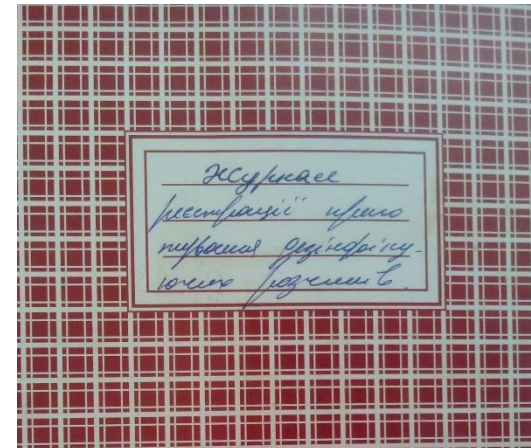 Журнал
реєстрації приго
тування дезінфіку-
ючих розчинів.